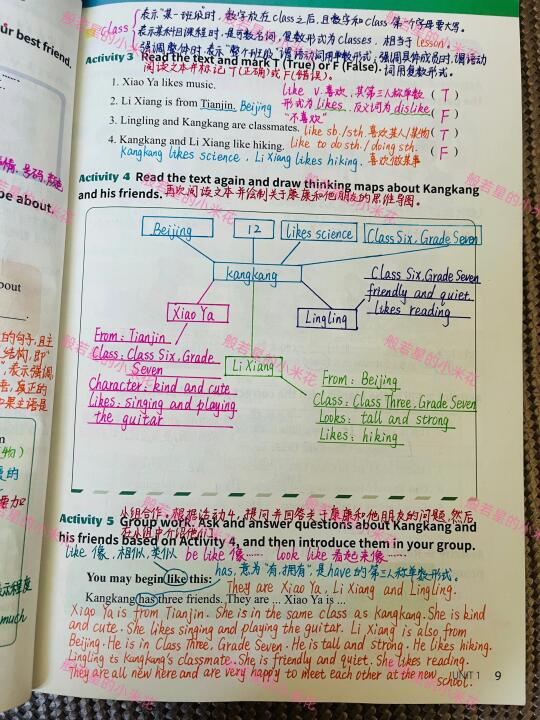 class 表示"某一班级"时，数字放在Class之后，且数字和Class 第一个字母要大写。
表示某种目课程时，是可数名词，复数形式为classes，相当于lesson。
强调整体时，表示"整个班级"谓语动词用单数形式；强调具体成员时，谓语动词用复数形式。
Activity 3 Read the text and mark T (True) or F (False).
阅读文本并标记T(正确)或F(错误)。
1. Xiao Ya likes music. (T)
like v.喜欢，其第三人称单数
2. Li Xiang is from Tianjin. Beijing (F)
形式为likes. 反义词为dislike
"不喜欢"
3. Lingling and Kangkang are classmates. (T)
like sb./sth.喜欢某人/某物
4. Kangkang and Li Xiang like hiking. (F)
like to do sth./doing sth.
喜欢做某事
Kangkang likes science, Li Xiang likes hiking.
Activity 4 Read the text again and draw thinking maps about Kangkang
and his friends.
再次阅读文本并绘制关于康康和他朋友的思维导图。
Beijing
12
likes science
Class Six, Grade Seven
kangkang
Xiao Ya
From: Tianjin
Class: Class Six, Grade
Seven
Character: kind and cute
Likes: singing and playing
the guitar
Li Xiang
From: Beijing
Class: Class Three, Grade Seven
Looks: tall and strong
Likes: hiking
Lingling
Class Six, Grade Seven
friendly and quiet
likes reading
小组合作。根据活动4，提问并回答关于康康和他朋友的问题，然后
在小组中介绍他们。
Activity 5 Group work. Ask and answer questions about Kangkang and
his friends based on Activity 4, and then introduce them in your group.
like 像，相似，类似 be like 像…… look like 看起来像……
has，意为"有，拥有"，是have的第三人称单数形式。
You may begin like this:
They are Xiao Ya, Li Xiang and Lingling.
Kangkang has three friends. They are ... Xiao Ya is ...
Xiao Ya is from Tianjin. She is in the same class as Kangkang. She is kind
and cute. She likes singing and playing the guitar. Li Xiang is also from
Beijing. He is in Class Three, Grade Seven. He is tall and strong. He likes hiking.
Lingling is Kangkang's classmate. She is friendly and quiet. She likes reading.
They are all new here and are very happy to meet each other at the new
school.
UNIT 1 9
our best friend.
be about
about
much
般若星的小米花